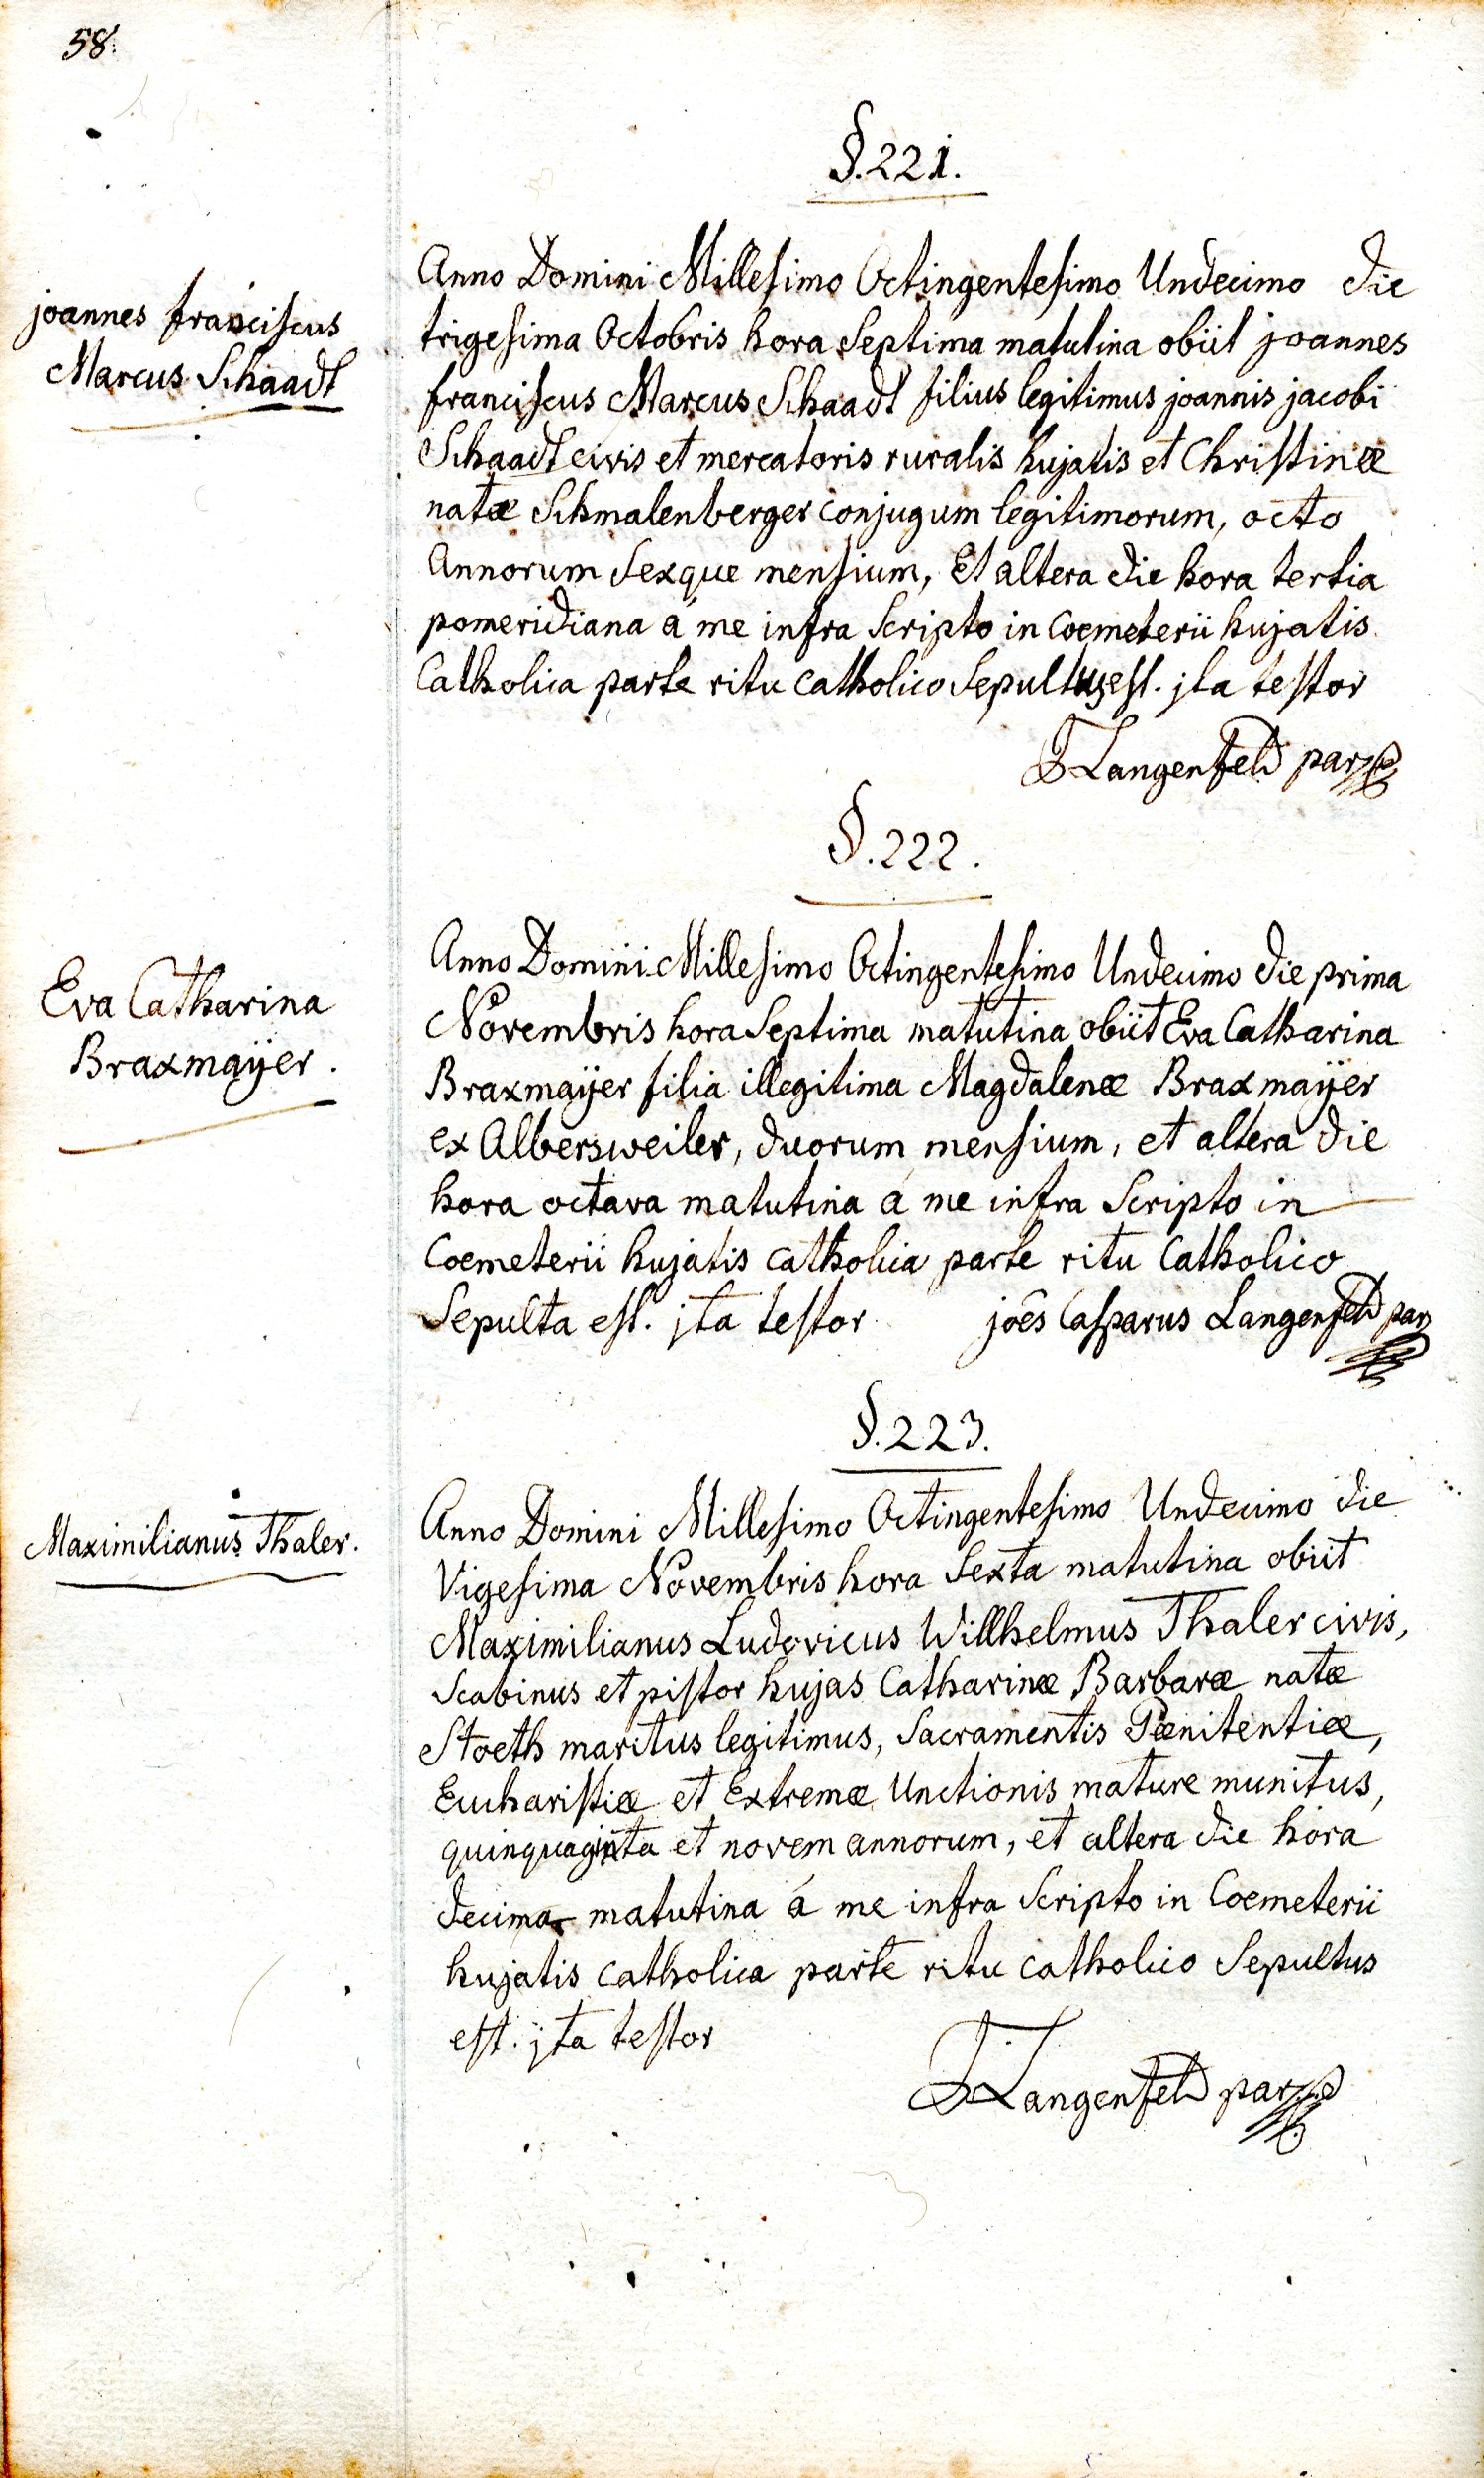 58.
§. 221.
joannes franciscus
Marcus Schaadt
Anno Domini Millesimo Octingentesimo Undecimo die
trigesima Octobris hora Septima matutina obiit joannes
franciscus Marcus Schaadt filius legitimus joannis jacobi
Schaadt civis et mercatoris ruralis hujatis et Christinæ
natæ Schmalenberger conjugum legitimorum, octo
Annorum Sexque mensium, Et altera die hora tertia
pomeridiana á me infra Scripto in Coemeterii hujatis
Catholica parte ritu catholico Sepultus est. jta testor
Langenfeld par
§. 222.
Eva Catharina
Braxmaÿer.
Anno Domini Millesimo Octingentesimo Undecimo die prima
Novembris hora Septima matutina obiit Eva Catharina
Braxmaÿer filia illegitima Magdalenæ Braxmaÿer
ex Albersweiler, duorum mensium, et altera die
hora octava matutina á me infra Scripto in
Coemeterii hujatis catholica parte ritu Catholico
Sepulta est. jta testor joês Casparus Langenfeld par
§. 223.
Maximilianus Thaler.
Anno Domini Millesimo Octingentesimo Undecimo die
Vigesima Novembris hora Sexta matutina obiit
Maximilianus Ludovicus Willhelmus Thaler civis,
Scabinus et pistor hujas Catharinæ Barbaræ natæ
Stoeth maritus legitimus, Sacramentis Pœnitentiæ,
Eucharistiæ et Extremæ Unctionis mature munitus,
quinquaginta et novem annorum, et altera die hora
decima matutina á me infra Scripto in Coemeterii
hujatis catholica parte ritu catholico Sepultus
est. jta testor
Langenfeld par